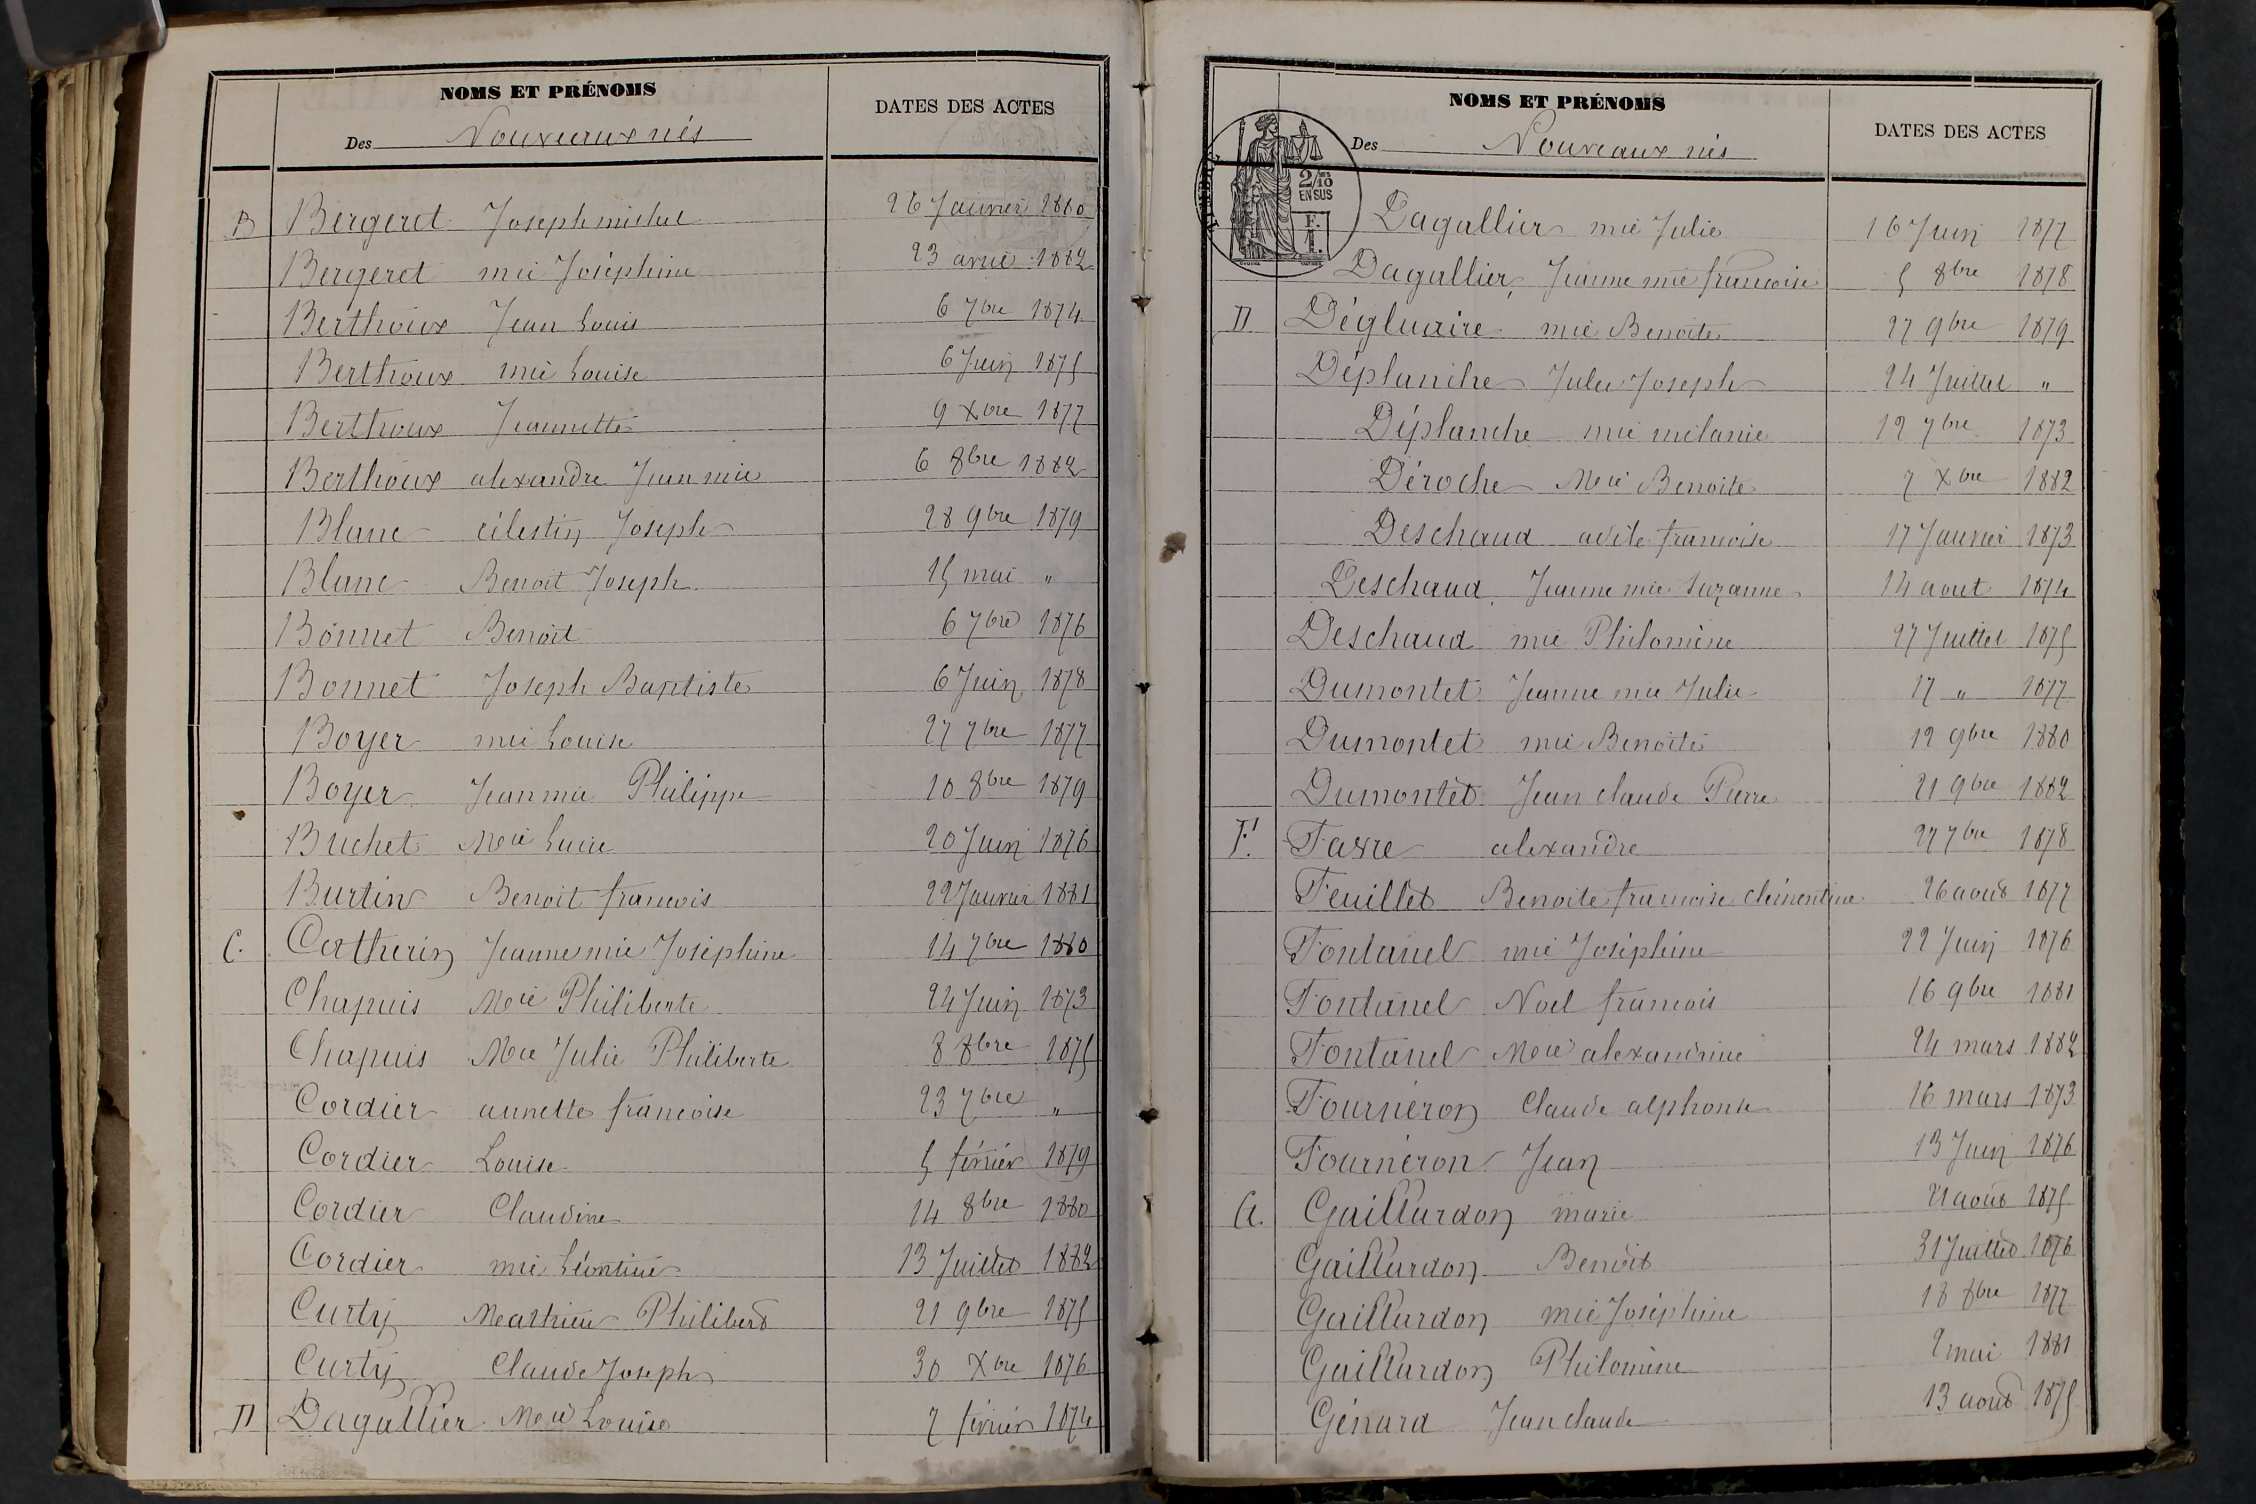 NOMS ET PRÉNOMS
DATES DES ACTES
Des Nouveaux nés
B Bergeret Joseph michel 26 Janvier 1880
Bergeret mie Joséphine 23 avril 1882
Berthoux Jean Louis 6 7bre 1874
Berthoux mie Louise 6 Juin 1875
Berthoux Jeannette 9 Xbre 1877
Berthoux alexandre Jean mie 6 8bre 1882
Blanc célestin Joseph 28 9bre 1879
Blanc Benoit Joseph 15 mai "
Bonnet Benoit 6 7bre 1876
Bonnet Joseph Baptiste 6 Juin 1878
Boyer mie Louise 27 7bre 1877
Boyer Jean mie Philippe 10 8bre 1879
Buchet Mie Lucie 20 Juin 1876
Burtin Benoit francois 22 Janvier 1881
C. Catherin Jeanne mie Joséphine 14 7bre 1880
Chapuis Mie Philiberte 24 Juin 1873
Chapuis Mie Julie Philiberte 8 8bre 1875
Cordier annette francoise 23 7bre "
Cordier Louise 5 février 1879
Cordier Claudine 14 8bre 1880
Cordier mie Léontine 13 Juillet 1882
Curty Mathieu Philibert 21 9bre 1875
Curty Claude Joseph 30 Xbre 1876
D Dagallier Mie Louise 7 février 1874
NOMS ET PRÉNOMS
DATES DES ACTES
Des Nouveaux nés
TIMBRE
2/10 EN SUS
F. 1.
Dagallier mie Julie 16 Juin 1877
Dagallier, Jeanne mie francoise 5 8bre 1878
D Dégluaire mie Benoite 27 9bre 1879
Déplanche Jules Joseph 24 Juillet "
Déplanche mie mélanie 12 7bre 1873
Déroche Mie Benoite 7 Xbre 1882
Deschaud adèle francoise 17 Janvier 1873
Deschaud Jeanne mie Suzanne 14 aout 1874
Deschaud mie Philomène 27 Juillet 1875
Dumontet Jeanne mie Julie 17 " 1877
Dumontet mie Benoite 12 9bre 1880
Dumontet Jean claude Pierre 21 9bre 1882
F. Favre alexandre 27 7bre 1878
Feuillet Benoite francoise clémentine 26 aout 1877
Fontanel mie Joséphine 22 Juin 1876
Fontanel Noel francois 16 9bre 1881
Fontanel Mie alexandrine 24 mars 1882
Fournéron Claude alphonse 16 mars 1873
Fournéron Jean 13 Juin 1876
G. Gaillardon marie 21 août 1875
Gaillardon Benoit 31 Juillet 1876
Gaillardon mie Joséphine 18 8bre 1877
Gaillardon Philomène 2 mai 1881
Génard Jean claude 13 aout 1875